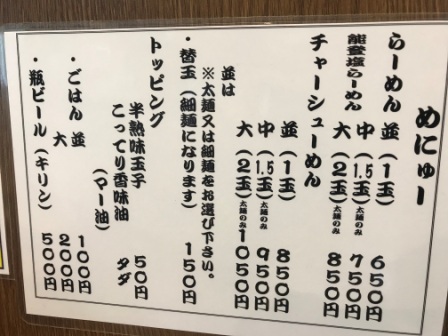 めにゅー
らーめん
能登塩らーめん
並（1玉） 650円
中（1.5玉）太麺のみ 750円
大（2玉）太麺のみ 850円
チャーシューめん
並（1玉） 850円
中（1.5玉）太麺のみ 950円
大（2玉）太麺のみ 1050円
並は
※太麺又は細麺をお選び下さい。
・替玉（細麺になります） 150円
トッピング
半熟味玉子 50円
こってり香味油 タダ
（マー油）
・ごはん 並 100円
大 200円
・瓶ビール（キリン） 500円